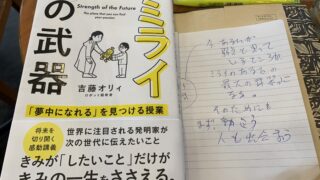 ミライ
の武器
Strength of the Future
吉藤オリィ
ロボット研究者
「夢中になれる」を見つける授業
将来を
切り開く
感動講義
世界に注目される発明家が
次の世代に伝えたいこと
きみが「したいこと」だけが
きみの一生をささえる。
今あなたが
弱点と思って
いるところが
あなたの
最大の武器に
なる。
そのために
まず、
人と出会おう